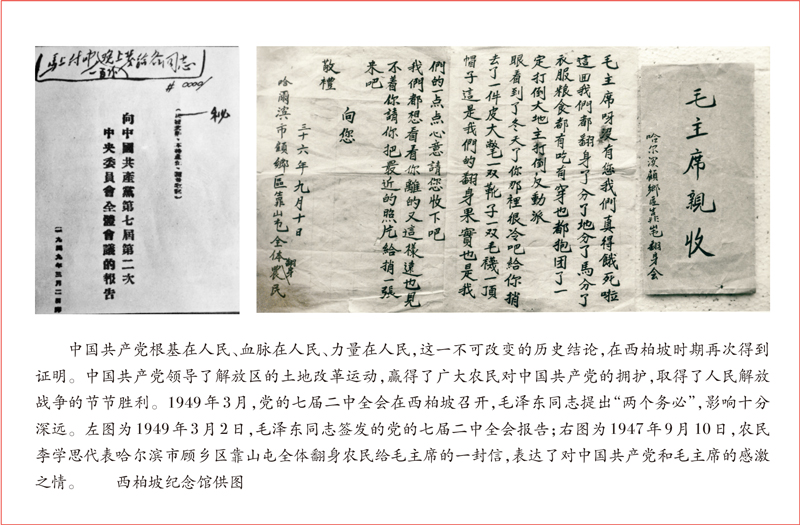 一秘
向中國共產黨第七屆第二次
中央委員會全體會議的報告
一九四九年三月二日
毛主席親收
哈尔滨顧鄉區靠山屯翻身会
毛主席呀沒有您我們真得餓死啦
這回我們都翻身了分了地分了馬分了
衣服粮食都有吃有穿也都抱团了一
定打倒大地主打倒反动派
眼看到了冬天了你那裡很冷吧給你捎
去了一件皮大氅一双靴子一双毛襪一頂
帽子這是我們的翻身果實也是我
們的一点点心意請您收下吧
我們都想看看你離的又這樣遠也見
不着你請你把最近的照片給捎一張
来吧
向您
敬禮
三十六年九月十日
哈爾滨市顧鄉區靠山屯全体翻身農民
中国共产党根基在人民、血脉在人民、力量在人民，这一不可改变的历史结论，在西柏坡时期再次得到
证明。中国共产党领导了解放区的土地改革运动，赢得了广大农民对中国共产党的拥护，取得了人民解放
战争的节节胜利。1949年3月，党的七届二中全会在西柏坡召开，毛泽东同志提出“两个务必”，影响十分
深远。左图为1949年3月2日，毛泽东同志签发的党的七届二中全会报告；右图为1947年9月10日，农民
李学思代表哈尔滨市顾乡区靠山屯全体翻身农民给毛主席的一封信，表达了对中国共产党和毛主席的感激
之情。 西柏坡纪念馆供图